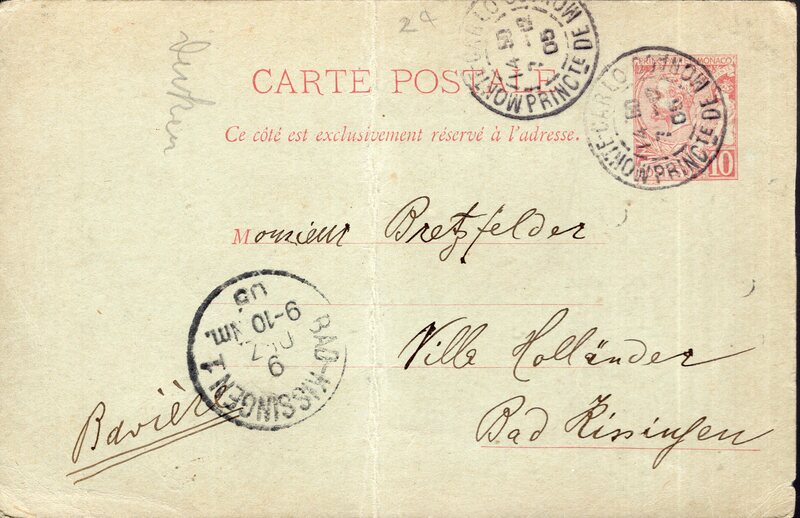 24
MONACO
MONTE-CARLO PRINCTE DE MONACO
MONTE-CARLO PRINCTE DE MONACO
10
CARTE POSTALE
Ce côté est exclusivement réservé à l'adresse.
Monsieur Bretzfelder
Villa Holländer
Bad Kissingen
Bavière
BAD-KISSINGEN 1
9
DEZ
9-10 Nm.
05